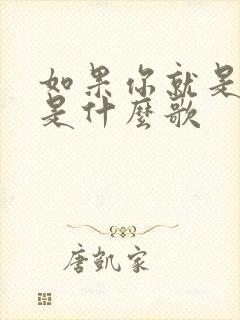 如果你就是
是什麼歌
唐凱家